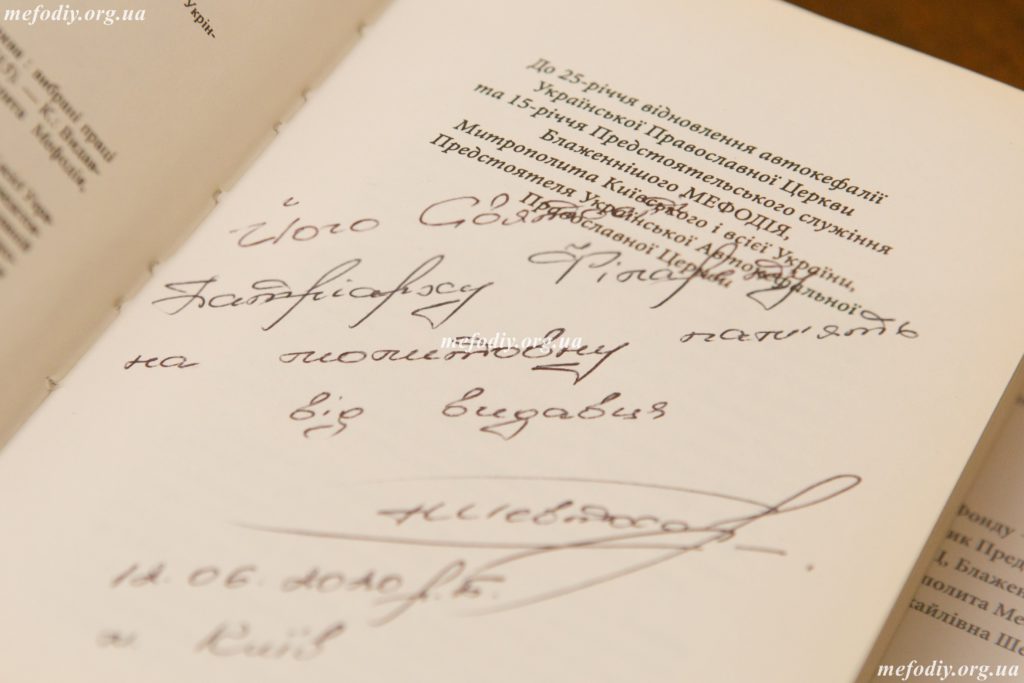 mefodiy.org.ua
mefodiy.org.ua
Укрін-
вибрані праці
К. Видав-
Мефодія,
До 25-річчя відновлення автокефалії
Української Православної Церкви
та 15-річчя Предстоятельського служіння
Блаженнішого МЕФОДІЯ,
Митрополита Київського і всієї України,
Предстоятеля Української Автокефальної
Православної Церкви
Його Святості
Патріарху Філарету
на молитовну пам'ять
від видавця
mefodiy.org.ua
12.06.2020
м. Київ
фонду
Блажен
полита Ме
хайлівна Ше
mefodiy.org.ua